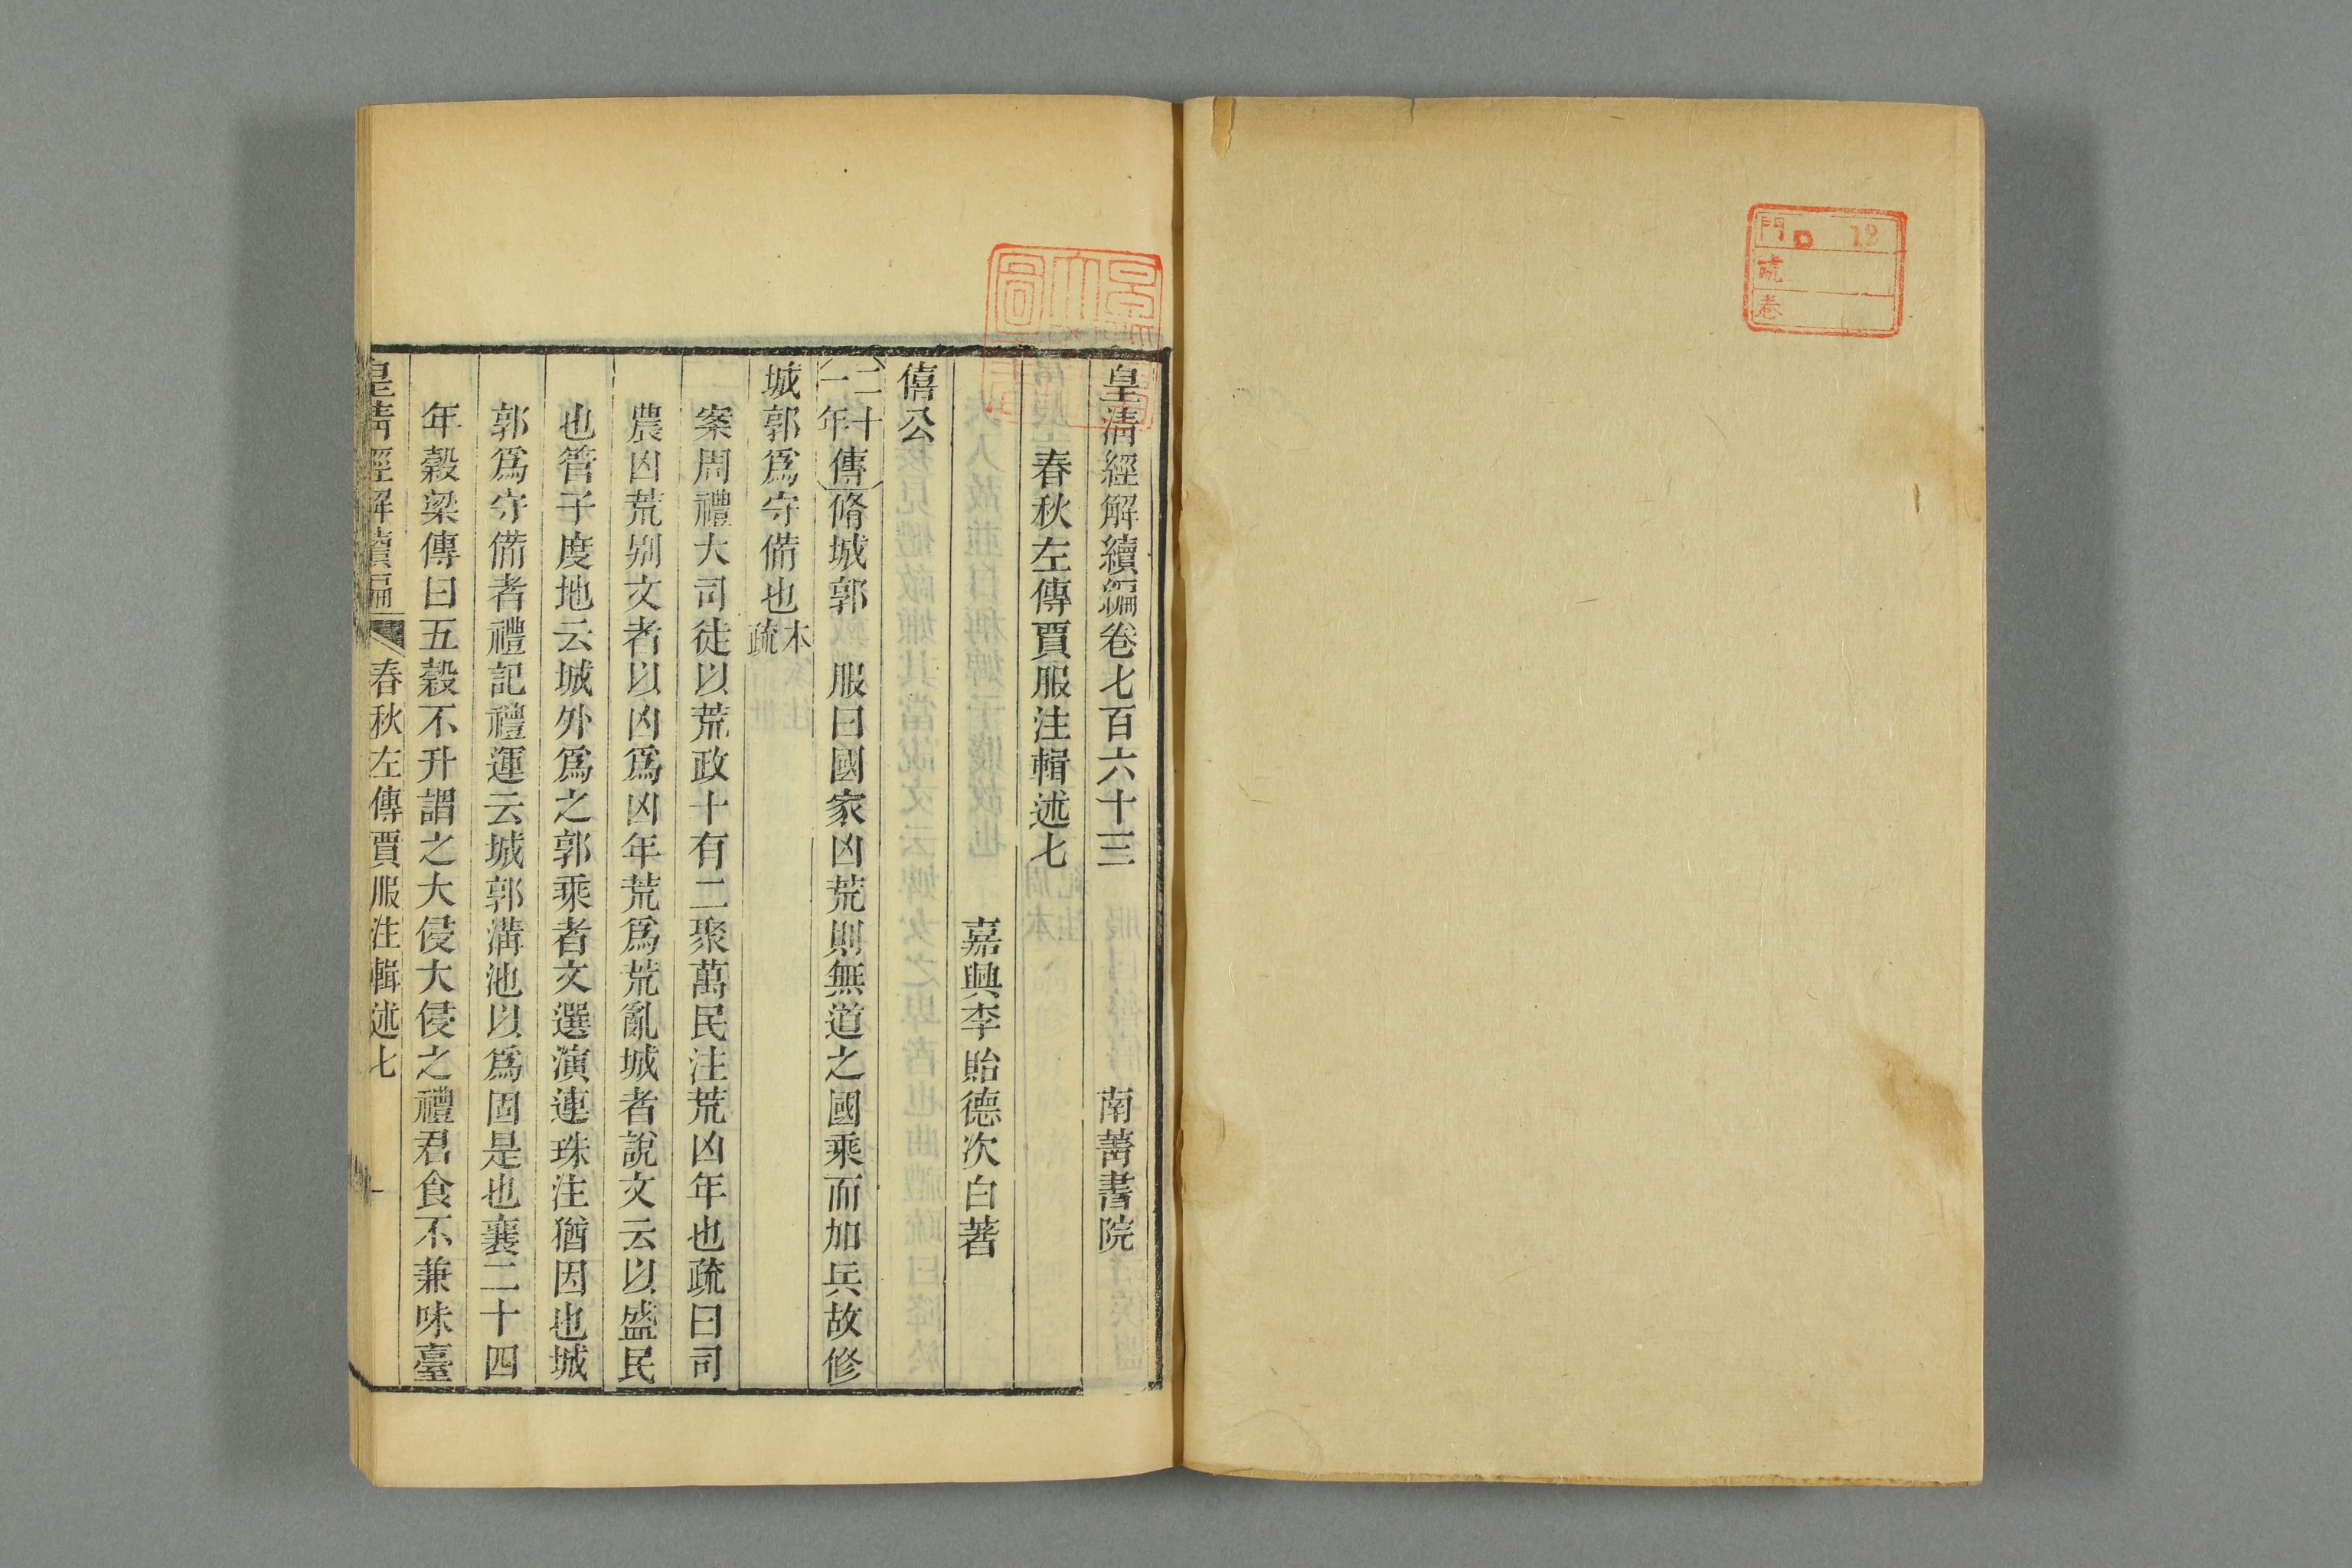 門 D 12
號
卷
皇清經解續編卷七百六十三 南菁書院
春秋左傳賈服注輯述七
嘉興李貽德次白著
僖公
二十一年傳脩城郭 服曰國家凶荒則無道之國乘而加兵故修
城郭爲守備也本疏
案周禮大司徒以荒政十有二聚萬民注荒凶年也疏曰司
農凶荒别文者以凶爲凶年荒爲荒亂城者說文云以盛民
也管子度地云城外爲之郭乘者文選演連珠注猶因也城
郭爲守備者禮記禮運云城郭溝池以爲固是也襄二十四
年榖梁傳曰五榖不升謂之大侵大侵之禮君食不兼味臺
皇清經解續編 春秋左傳賈服注輯述七 一